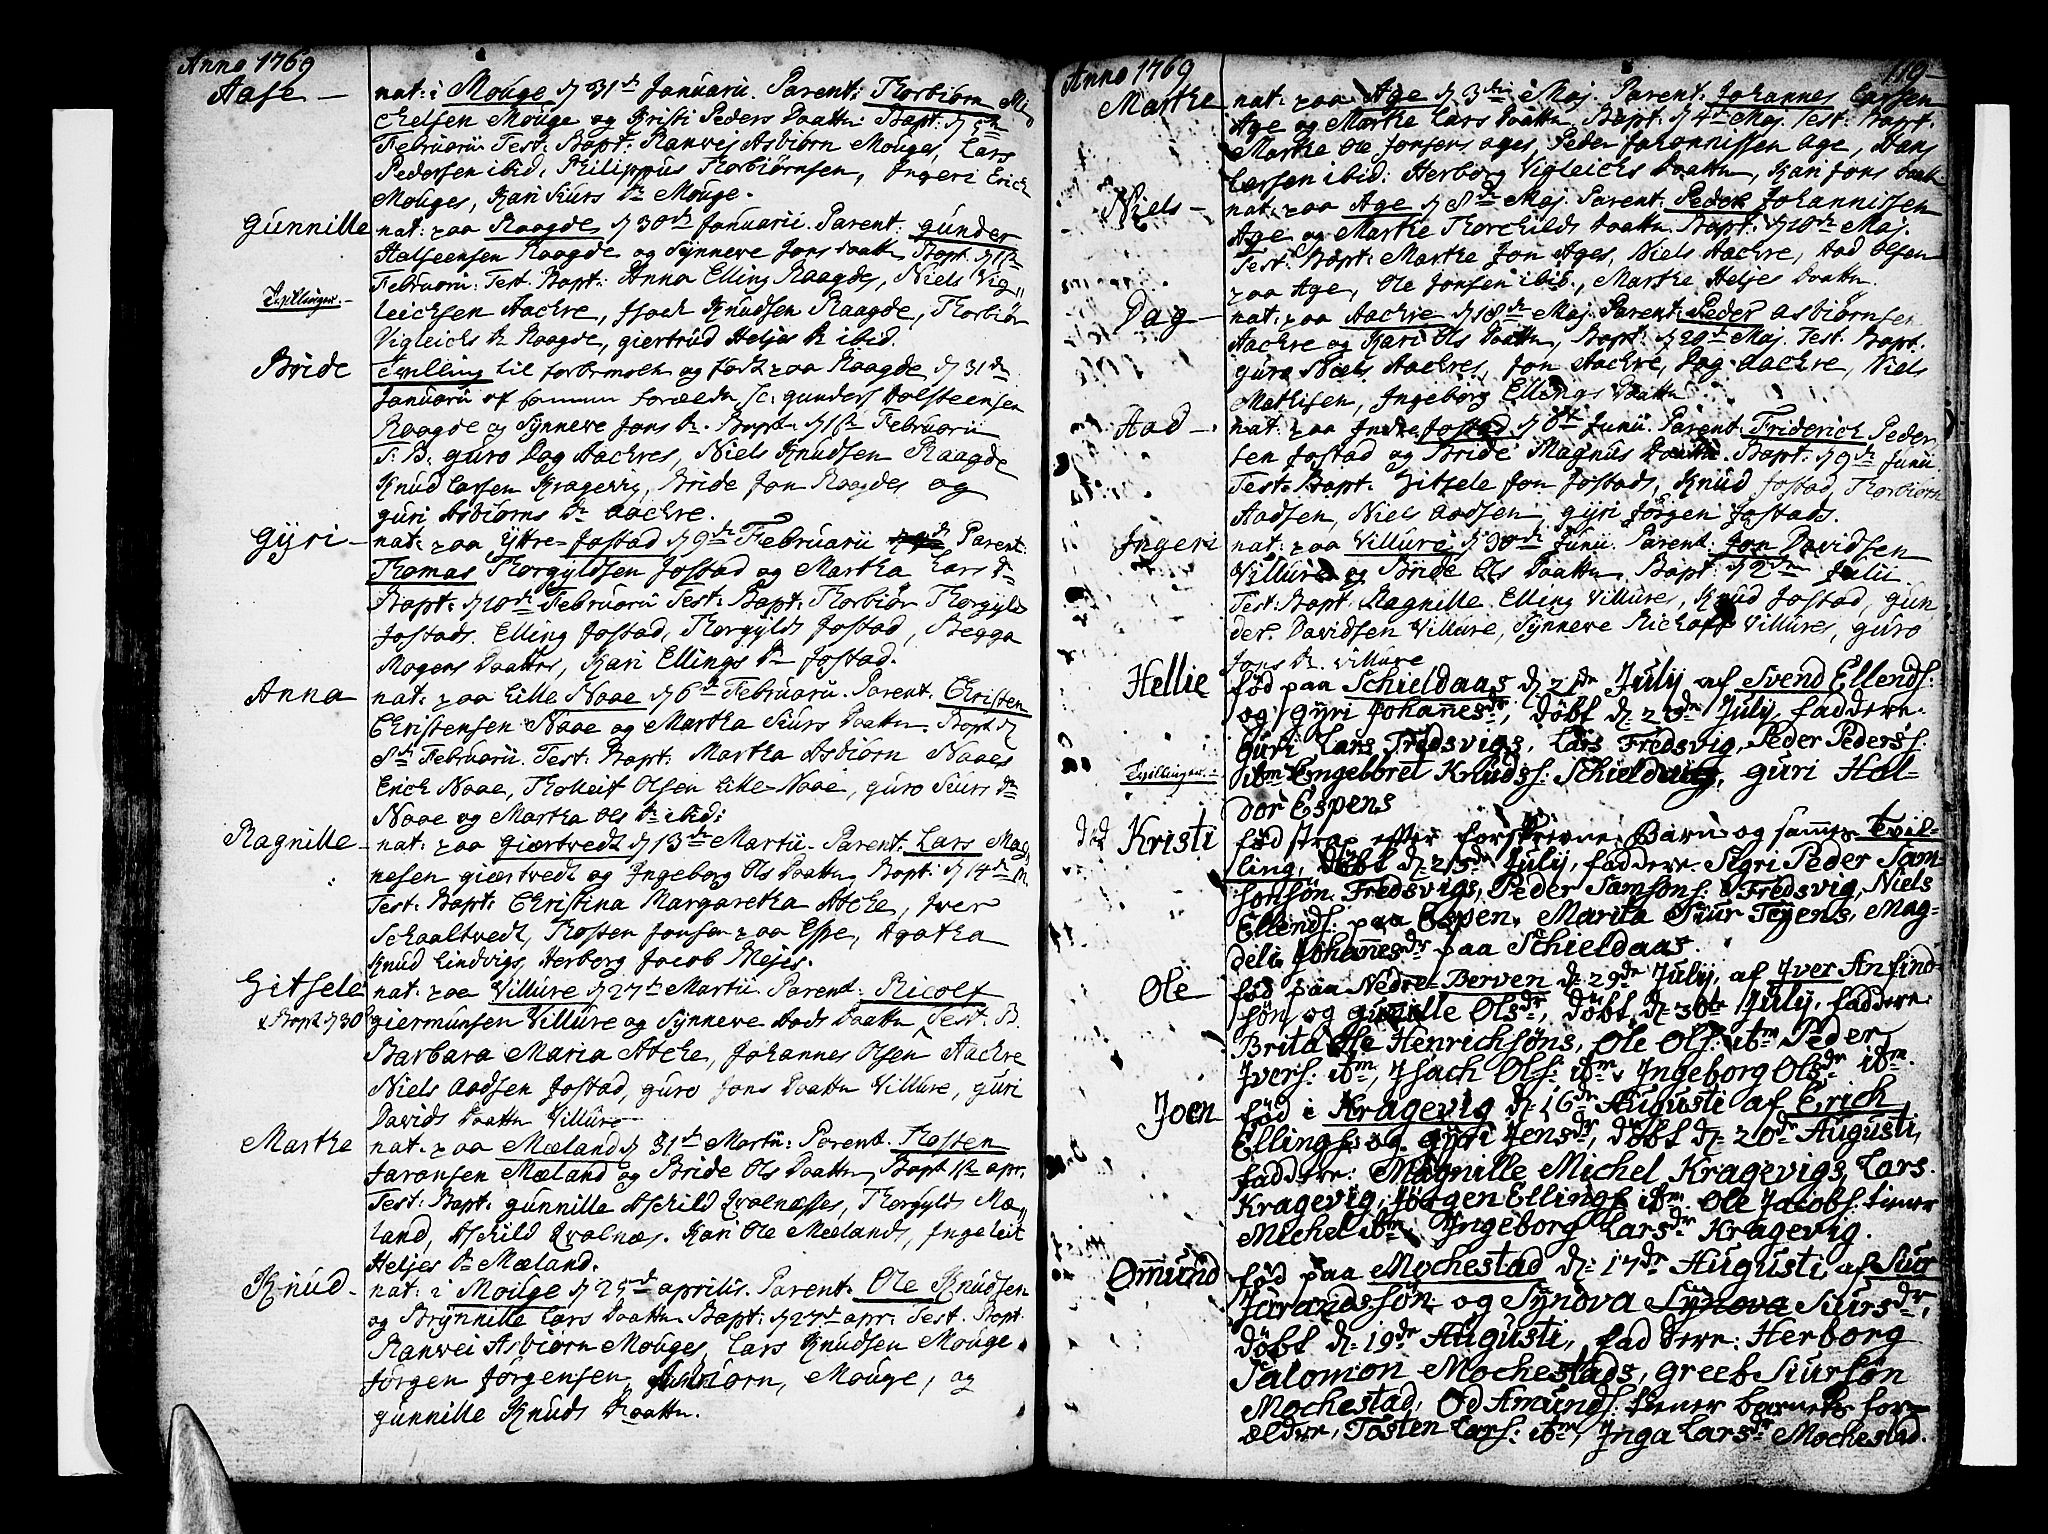 Anno 1769
Aase — nat: i Mouge d 31te Januarii. Parent: Thorbiørn Mi
chelsen Mouge og Kristi Peders Daatter. Bapt: d
Februarii. Test: Bapt: Ranvei Asbiørn Mouges, Lars
Pedersen ibid, Philippus Thorbiørnsen, Ingeri Erich
Mouges, Kari Siurs Dr Mouge.
Gunnille nat: paa Raagde d 30te Januarii. Parent: Gunder
Halsteensen Raagde og Synneve Jons Daatter Bapt: d 1ste
Februarii. Test. Bapt: Anna Elling Raagde, Niels Vig„
Tvillinger.-
leichsen Aachre, Isach Knudsen Raagde, Thorbiør
Vigleichs Dr Raagde, giertrud Heljes Dr ibid.
Bride Tvilling til forbemelte og født paa Raagde d 31te
Januarii af samme forældre, sc: gunders Holsteensen
Raagde og Synneve Jons Dr. Bapt: d 1ste Februarii
T. B: guro Dag Aachres, Niels Knudsen Raagde
Knud Larsen Kragevig, Bride Jon Raagdes og
guri Asbiørns Dr Aachre.
Gyri — nat: paa Yttre-Jostad d 9de Februarii Parent:
Thomas Thorgyldsen Jostad og Martha Lars Dr
Bapt: d 10de Februarii Test: Bapt: Thorbiør Thorgyld
Jostads. Elling Jostad, Thorgyld Jostad, Begga
Mogens Daatter, Kari Ellings Dr Jostad.
Anna nat: paa Lille Naae d 6te Februarii. Parent. Christen
Christensen Naae og Martha Siurs Daatter. Bapt d
8de Februarii. Test. Bapt: Martha Asbiørn Naaes
Erich Naae, Tholleit Olsen Lille-Naae, guro Siurs Dr
Naae og Martha Ols Dr ibid:
Ragnille — nat: paa Giertvedt d 13de Martii. Parent. Lars Mag„
nesen giertvedt og Ingeborg Ols Daatter Bapt: d 14de M.
Test: Bapt: Christina Margaretha Atche, Iver
Schaaltvedt, Thosten Jonsen paa Espe, Agatha
Knud Lindvigs, Herborg Jacob Mejes.
Gitsele nat: paa Villure d 27de Martii Parent: Ricolf
x Bapt d 30 giermunsen Villure og Synneve Aads Daatter Test: B.
Barbara Maria Atche, Johannes Olsen Aachre
Niels Aadsen Jostad, guro Jons Daatter Villure, guri
Davids Daatter Villure
Marthe nat: paa Mæland d 31te Martii: Parent. Thosten
Jaransen Mæland og Bride Ols Daatter, Bapt 1ste apr.
Test: Bapt. gunnille Aschild Qvalnæsses, Thorgyld Mæ„
land, Aschild Qvalnæs. Kari Ole Mælands, Ingeleit
Heljes Dr Mæland.
Knud — nat: i Mouge d 25de aprilis. Parent. Ole Knudsen
og Brynnille Lars Daatter Bapt: d 27de apr: Test. Bapt
Ranvei Asbiørn Mouges, Lars Knudsen Mouge
Jørgen Jørgensen, Asbiørn, Mouge, og
gunnille Knuds Daatter.
Anno 1769 119-
Marthe nat: paa Age d 3die Maj. Parent. Johannes Larsen
Age og Marthe Lars Daatter Bapt: d 4de Maj. Test: Bapt.
Marthe Ole Jonsens ages, Peder Johannissen Age, Hans
Larsen ibid: Herborg Vigleichs Daatter, Kari Jons Daatt
Niels — nat: paa Age d 8de Maj. Parent: Peder Johannissen
Age og Marthe Thorchilds Daatter. Bapt: d 10de Maj.
Test: Bapt: Marthe Jon Ages, Niels Aachre, Aad Olsen
paa Age, Ole Jonsen ibid., Marthe Heljes Daatter.
Dag — nat: paa Aachre d 18de Maj. Parent: Peder Asbiørnsen
Aachre og Kari Ols Daatter, Bapt: d 20de Maj. Test: Bapt.
guro Niels Aachres, Jon Aachre, Dag Aachre, Niels
Mathisen, Ingeborg Ellings Daatter
Aad — nat: paa Indre Jostad d 8de Junii. Parent: Friderich Peder
sen Jostad og Bride Magnus Daatter. Bapt: d 9de Junii
Test: Bapt: Gitsele Jon Jostads, Knud Jostad, Thorbiørn
Aadsen, Niels Aadsen, gyri Jörgen Jostads.
Ingeri nat: paa Villure d 30de Junii. Parent: Jon Davidsen
Villure og Bride Ols Daatter Bapt: d 2den Julii.
Test: Bapt. Ragnille Elling Villures, Knud Jostad, Gun
der. Davidsen Villure, Synneve Richolf Villures, guro
Jons Dr. Villure
Hellie fød paa Schieldaas d: 21de July af Svend Ellends:
og Gÿri Johannesdr, döbt d: 23de July, faddere:
Guri Lars Fredsvigs, Lars Fredsvig, Peder Peders:
Tvillinger.-
itm Engebret Knuds: Schieldaas, guri Hal-
dor Espens
Kristi fød strax efter forskrevne Barn og sammes Tvil-
ling, döbt d: 23de July, faddere: Sigri Peder Sam-
sonsøn Fredsvigs, Peder Samsons: Fredsvig, Niels
Ellends: paa Espen, Marita Siur Teÿens, Mag-
deli Johannesdr paa Schieldaas.
Ole fød paa Nedre-Berven d: 29de July, af Iver Anfind-
søn og gunnille Olsdr, döbt d: 30te July, faddere:
Brita Ole Henrichsöns, Ole Ols: itm Peder
Ivers: itm, Isach Ols: itm, Ingeborg Olsdr itm.
Joen fød i Kragevig d: 16de Augusti af Erich
Ellings: og gÿri Jensdr, döbt d: 20de Augusti,
faddere: Magnille Michel Kragevigs, Lars
Kragevig, Jörgen Ellings: itm Ole Jacobs: tiener
Michel itm, Ingeborg Larsdr Kragevig.
Omund fød paa Mochestad d: 17de Augusti, af Siur
Jarandssøn og Sÿnova Sÿnova Siursdr,
döbt d: 19de Augusti, faddere: Herborg
Salomon Mochestads, Greeb Siursøn
Mochestad, Od Amunds: tiener barnets for-
ældre, Tosten Lars: itm, Inga Larsdr Mochestad.